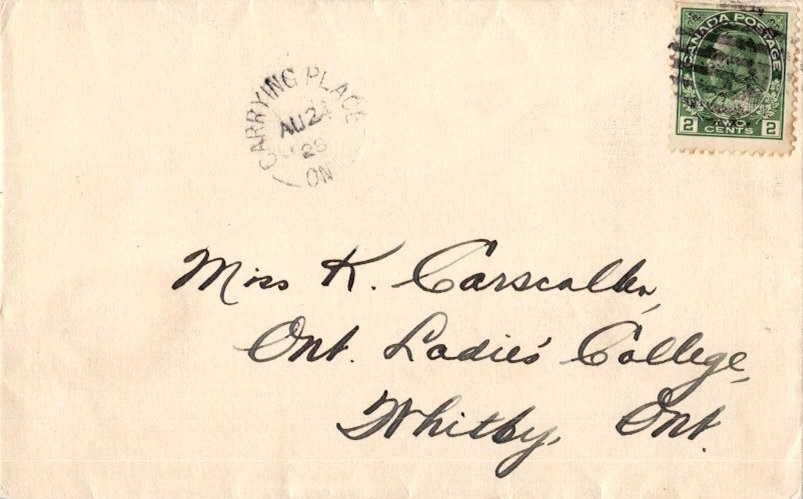 CANADA POSTAGE
2 TWO CENTS 2
CARRYING PLACE
AU 24
28
ON
Miss K. Carscallen,
Ont. Ladies' College,
Whitby, Ont.